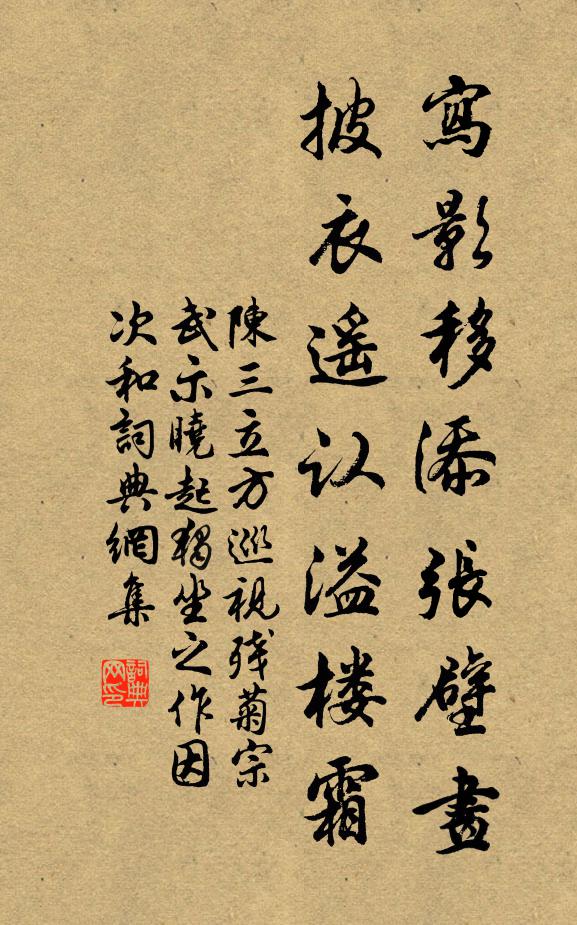 寫影移添張壁畫
披衣遥认溢楼霜
陳三立方巡視残菊宗
武示曉起獨坐之作因
次和詞典網集
詞典网印